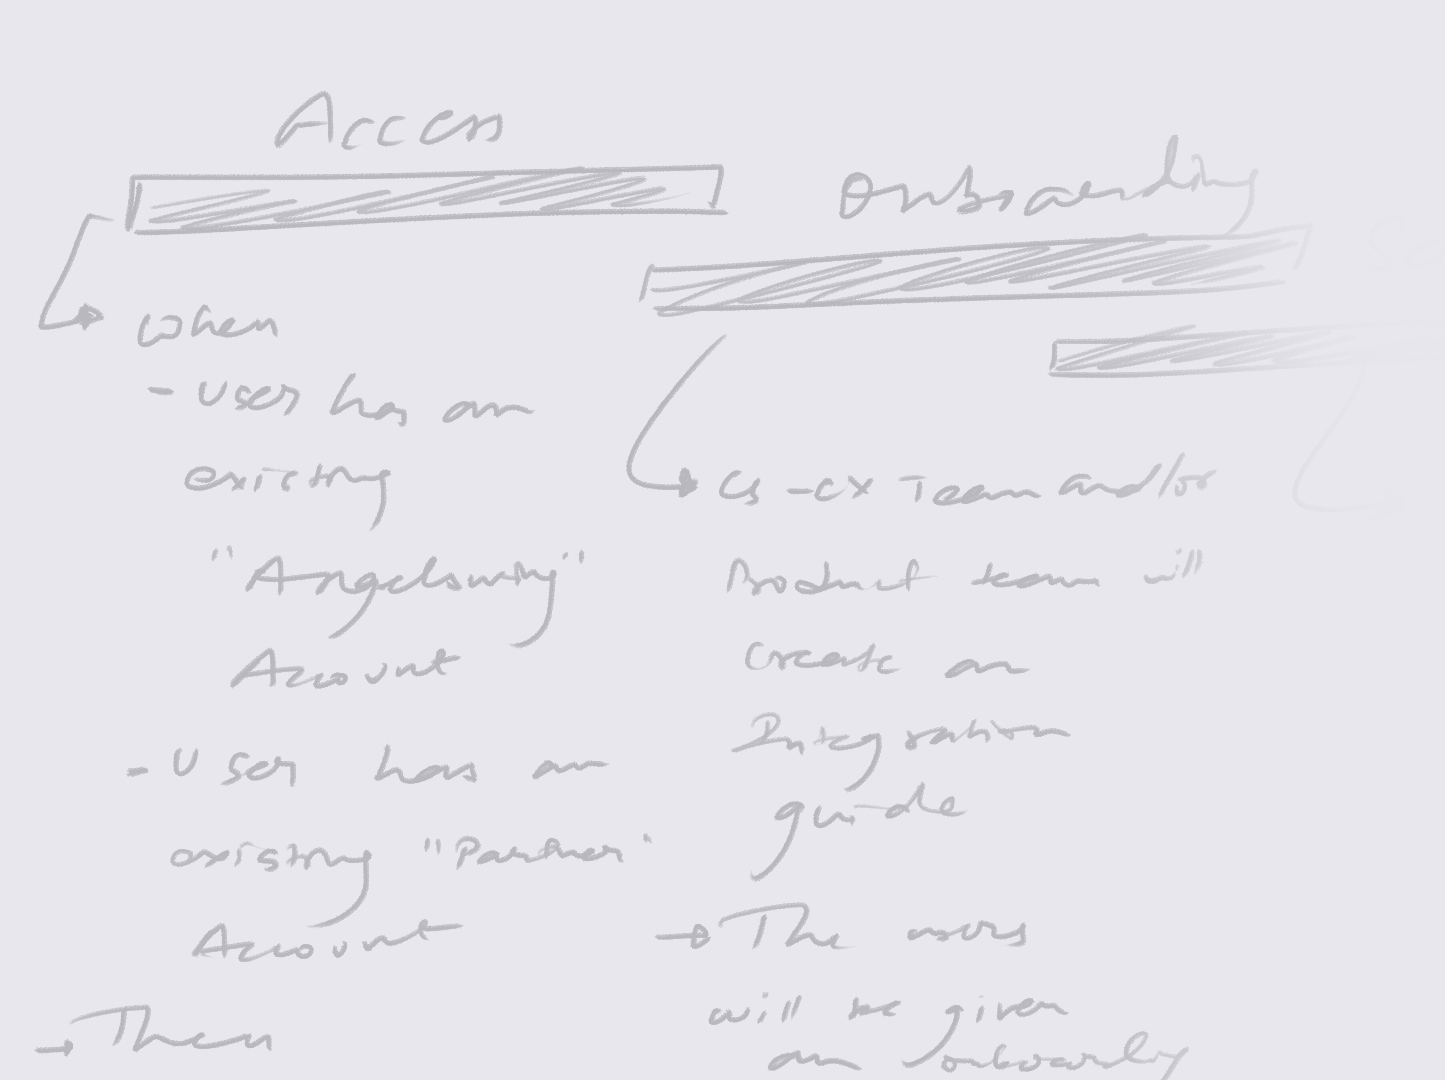 Access
when
- User has an
existing
"Angelswing"
Account
- User has an
existing "Partner"
Account
→ Then
Onboarding
CS-CX Team and/or
Product team will
create an
Integration
guide
→ The users
will be given
an onboarding